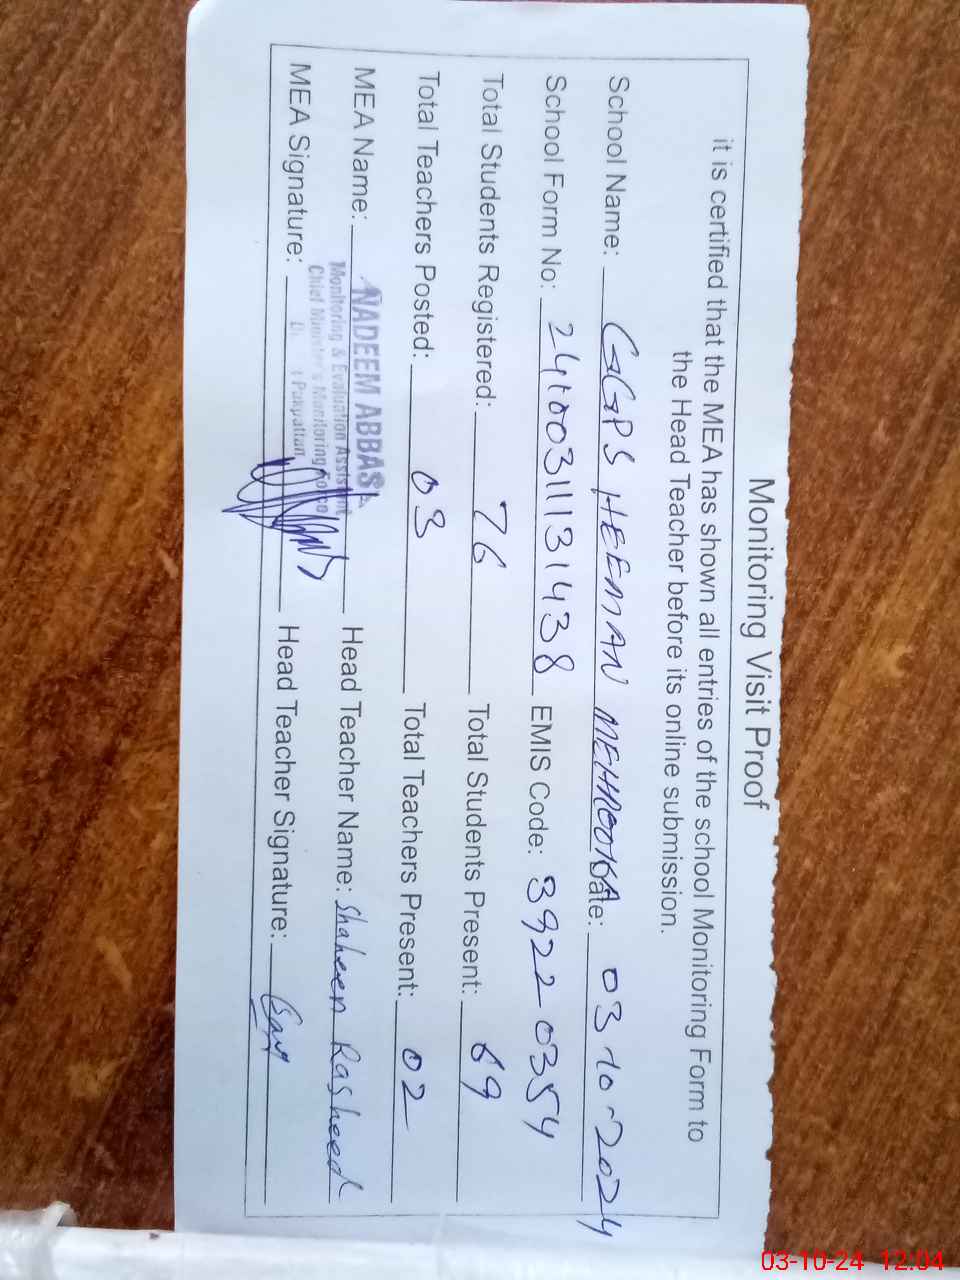 Monitoring Visit Proof
it is certified that the MEA has shown all entries of the school Monitoring Form to
the Head Teacher before its online submission.
School Name: GGPS HEEMAN MEHROOKA Date: 03-10-2024
School Form No: 24100311131438 EMIS Code: 39220354
Total Students Registered: 76 Total Students Present: 69
Total Teachers Posted: 03 Total Teachers Present: 02
MEA Name: NADEEM ABBAS Head Teacher Name: Shaheen Rasheed
Monitoring & Evaluation Assistant
Chief Minister's Monitoring Force
Pakpattan
MEA Signature: Head Teacher Signature:
03-10-24 12:04